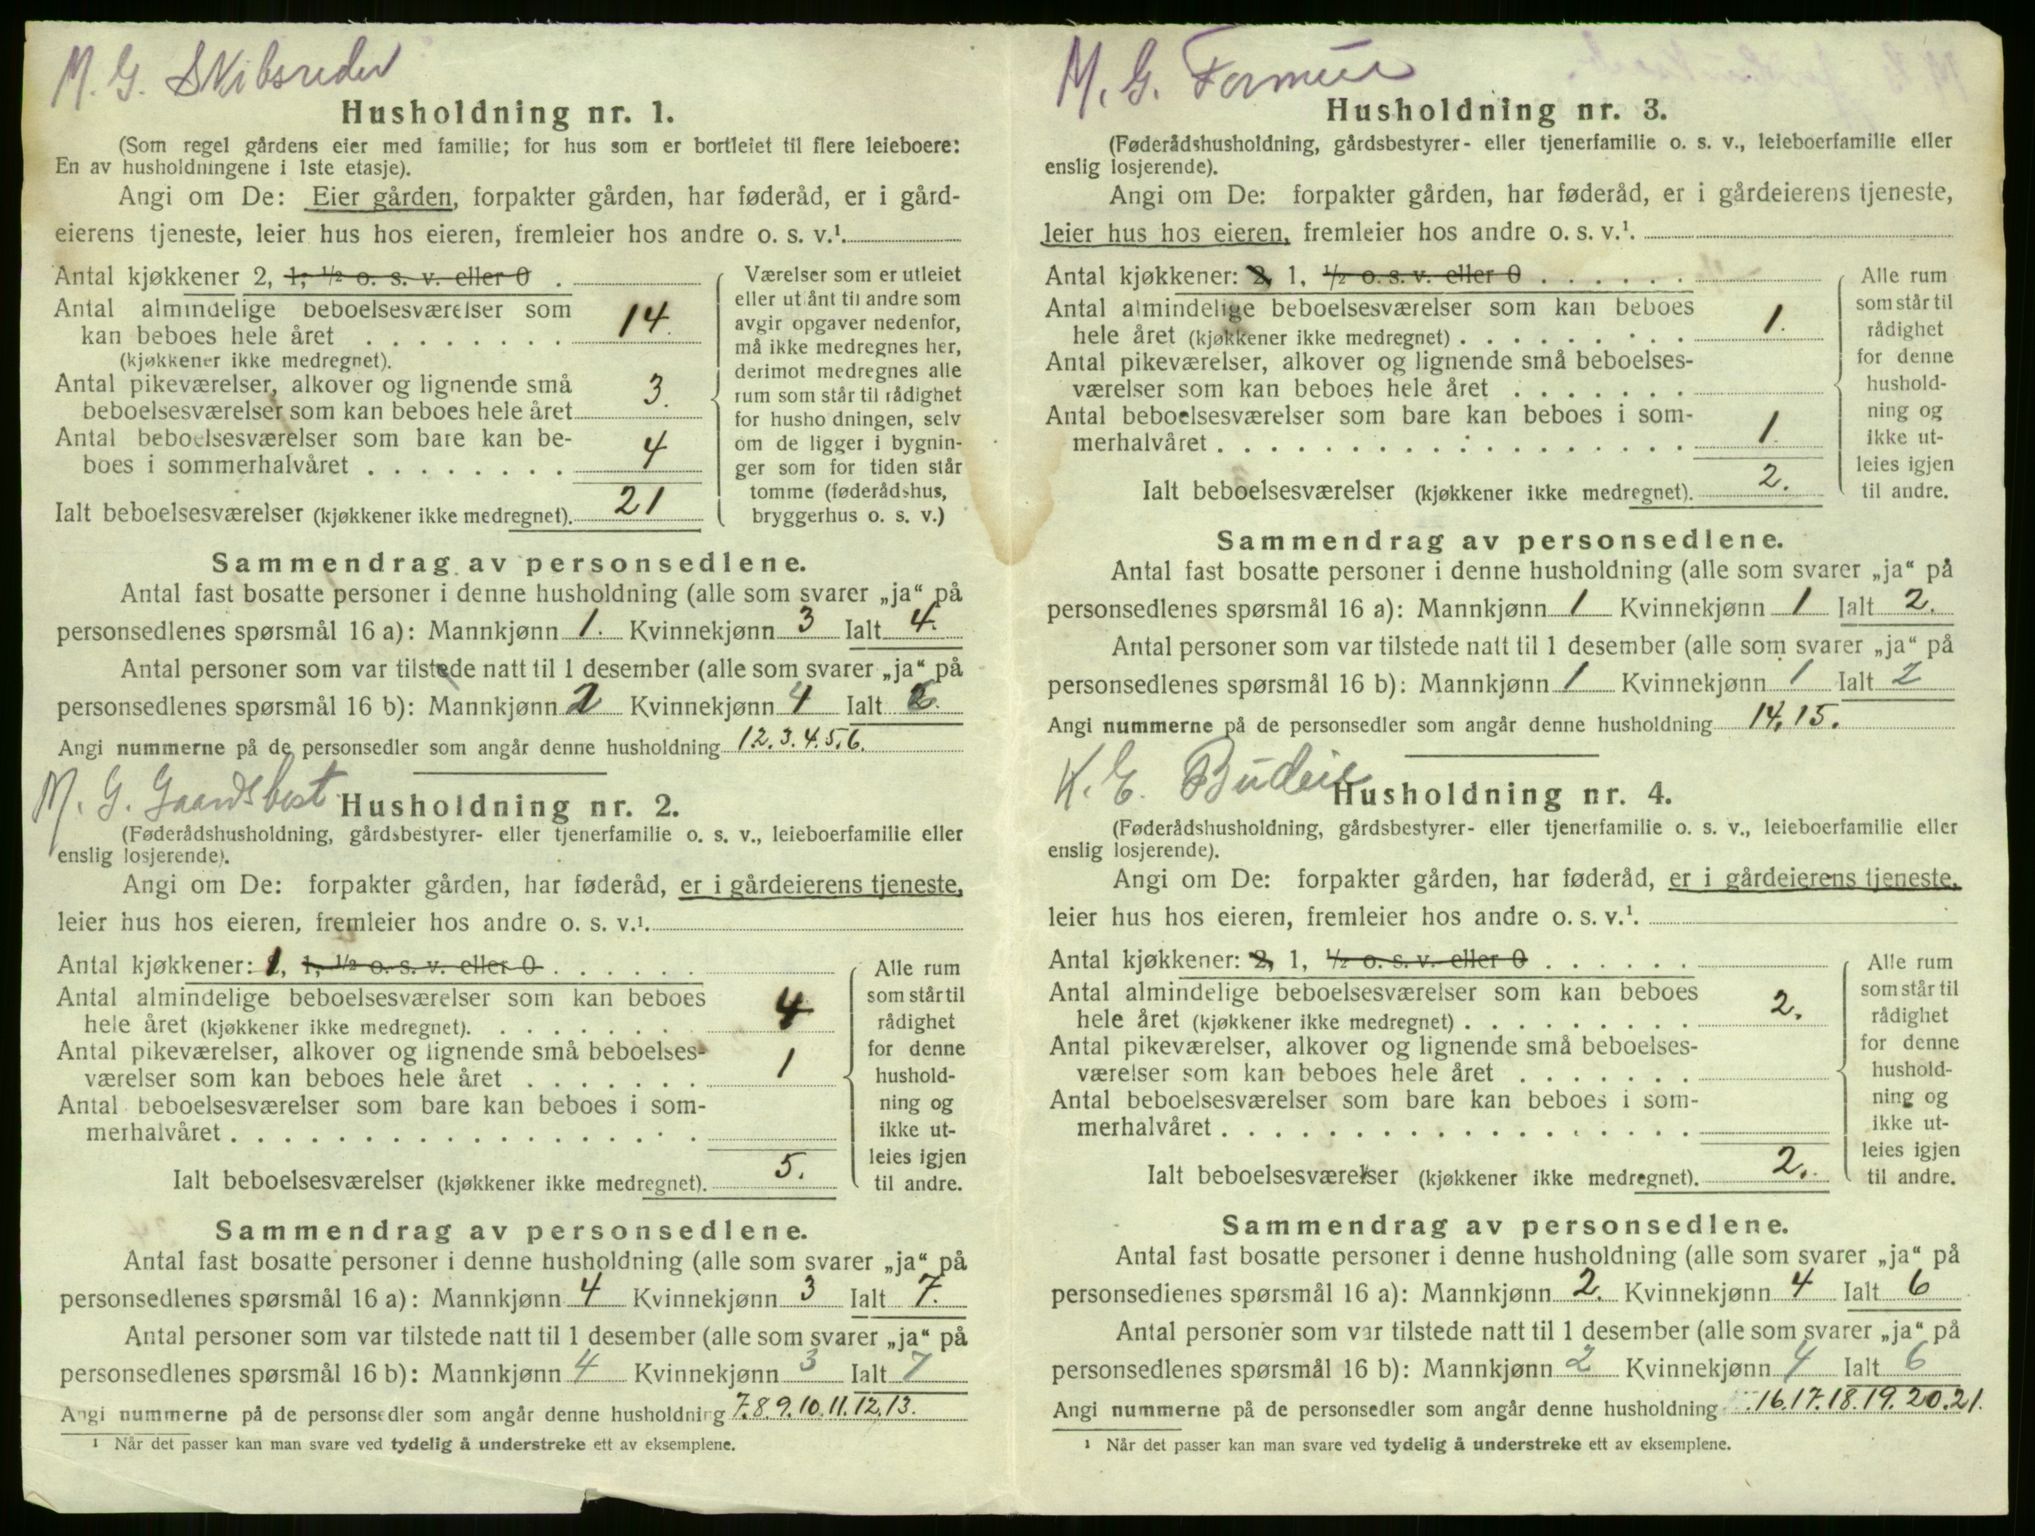 M. G. Skibsreder
Husholdning nr. 1.
(Som regel gårdens eier med familie; for hus som er bortleiet til flere leieboere:
En av husholdningene i 1ste etasje).
Angi om De: Eier gården, forpakter gården, har føderåd, er i gård-
eierens tjeneste, leier hus hos eieren, fremleier hos andre o. s. v.¹.
Antal kjøkkener 2, 1, ½ o. s. v. eller 0 .
Antal almindelige beboelsesværelser som
kan beboes hele året . . . . . . . . 14.
(kjøkkener ikke medregnet).
Antal pikeværelser, alkover og lignende små
beboelsesværelser som kan beboes hele året 3.
Antal beboelsesværelser som bare kan be-
boes i sommerhalvåret . . . . . . . . 4
Ialt beboelsesværelser (kjøkkener ikke medregnet). 21
Værelser som er utleiet
eller utlånt til andre som
avgir opgaver nedenfor,
må ikke medregnes her,
derimot medregnes alle
rum som står til rådighet
for husho dningen, selv
om de ligger i bygnin-
ger som for tiden står
tomme (føderådshus,
bryggerhus o. s. v.)
Sammendrag av personsedlene.
Antal fast bosatte personer i denne husholdning (alle som svarer „ja“ på
personsedlenes spørsmål 16 a): Mannkjønn 1. Kvinnekjønn 3 Ialt 4.
Antal personer som var tilstede natt til 1 desember (alle som svarer „ja“ på
personsedlenes spørsmål 16 b): Mannkjønn 2 Kvinnekjønn 4 Ialt 6.
Angi nummerne på de personsedler som angår denne husholdning 1.2.3.4.5.6.
M. G. Gaardsbest.
Husholdning nr. 2.
(Føderådshusholdning, gårdsbestyrer- eller tjenerfamilie o. s. v., leieboerfamilie eller
enslig losjerende).
Angi om De: forpakter gården, har føderåd, er i gårdeierens tjeneste,
leier hus hos eieren, fremleier hos andre o. s. v.¹.
Antal kjøkkener: 1, 1, ½ o. s. v. eller 0 . . . . . .
Antal almindelige beboelsesværelser som kan beboes
hele året (kjøkkener ikke medregnet). . . . . . . . . 4
Antal pikeværelser, alkover og lignende små beboelses-
værelser som kan beboes hele året . . . . . . . 1
Antal beboelsesværelser som bare kan beboes i som-
merhalvåret . . . . . . . . . . . . . . . . . .
Ialt beboelsesværelser (kjøkkener ikke medregnet). 5.
Alle rum
som står til
rådighet
for denne
hushold-
ning og
ikke ut-
leies igjen
til andre.
Sammendrag av personsedlene.
Antal fast bosatte personer i denne husholdning (alle som svarer „ja“ på
personsedlenes spørsmål 16 a): Mannkjønn 4 Kvinnekjønn 3 Ialt 7.
Antal personer som var tilstede natt til 1 desember (alle som svarer „ja“ på
personsedlenes spørsmål 16 b): Mannkjønn 4 Kvinnekjønn 3 Ialt 7
Angi nummerne på de personsedler som angår denne husholdning 7.8.9.10.11.12.13.
¹ Når det passer kan man svare ved tydelig å understreke ett av eksemplene.
M. G.
Husholdning nr. 3.
(Føderådshusholdning, gårdsbestyrer- eller tjenerfamilie o. s. v., leieboerfamilie eller
enslig losjerende).
Angi om De: forpakter gården, har føderåd, er i gårdeierens tjeneste,
leier hus hos eieren, fremleier hos andre o. s. v.¹.
Antal kjøkkener: 2, 1, ½ o. s. v. eller 0 . . . . . .
Antal almindelige beboelsesværelser som kan beboes
hele året (kjøkkener ikke medregnet) . . . . . . . . . 1.
Antal pikeværelser, alkover og lignende små beboelses-
værelser som kan beboes hele året . . . . . . .
Antal beboelsesværelser som bare kan beboes i som-
merhalvåret . . . . . . . . . . . . . . . . . . 1.
Ialt beboelsesværelser (kjøkkener ikke medregnet). 2.
Alle rum
som står til
rådighet
for denne
hushold-
ning og
ikke ut-
leies igjen
til andre.
Sammendrag av personsedlene.
Antal fast bosatte personer i denne husholdning (alle som svarer „ja“ på
personsedlenes spørsmål 16 a): Mannkjønn 1 Kvinnekjønn 1 Ialt 2.
Antal personer som var tilstede natt til 1 desember (alle som svarer „ja“ på
personsedlenes spørsmål 16 b): Mannkjønn 1 Kvinnekjønn 1 Ialt 2
Angi nummerne på de personsedler som angår denne husholdning 14.15.
K. E. Budeie
Husholdning nr. 4.
(Føderådshusholdning, gårdsbestyrer- eller tjenerfamilie o. s. v., leieboerfamilie eller
enslig losjerende).
Angi om De: forpakter gården, har føderåd, er i gårdeierens tjeneste,
leier hus hos eieren, fremleier hos andre o. s. v.¹.
Antal kjøkkener: 2, 1, ½ o. s. v. eller 0 . . . . . .
Antal almindelige beboelsesværelser som kan beboes
hele året (kjøkkener ikke medregnet) . . . . . . . . . 2.
Antal pikeværelser, alkover og lignende små beboelses-
værelser som kan beboes hele året . . . . . . .
Antal beboelsesværelser som bare kan beboes i som-
merhalvåret . . . . . . . . . . . . . . . . . .
Ialt beboelsesværelser (kjøkkener ikke medregnet). 2.
Alle rum
som står til
rådighet
for denne
hushold-
ning og
ikke ut-
leies igjen
til andre.
Sammendrag av personsedlene.
Antal fast bosatte personer i denne husholdning (alle som svarer „ja“ på
personsedlenes spørsmål 16 a): Mannkjønn 2. Kvinnekjønn 4 Ialt 6
Antal personer som var tilstede natt til 1 desember (alle som svarer „ja“ på
personsedlenes spørsmål 16 b): Mannkjønn 2 Kvinnekjønn 4 Ialt 6
Angi nummerne på de personsedler som angår denne husholdning 16.17.18.19.20.21.
¹ Når det passer kan man svare ved tydelig å understreke ett av eksemplene.